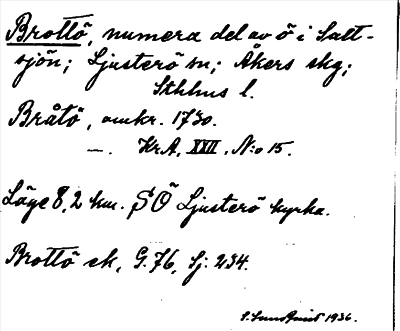 Brottö, numera del av ö i Salt-
sjön; Ljusterö sn; Åkers skg;
Sthlms l.
Bråtö, omkr. 1730.
—. KrA, XXII, N:o 15.
Läge 8,2 km. SÖ Ljusterö kyrka.
Brottö ek, G. 76, Sj: 234.
1936.